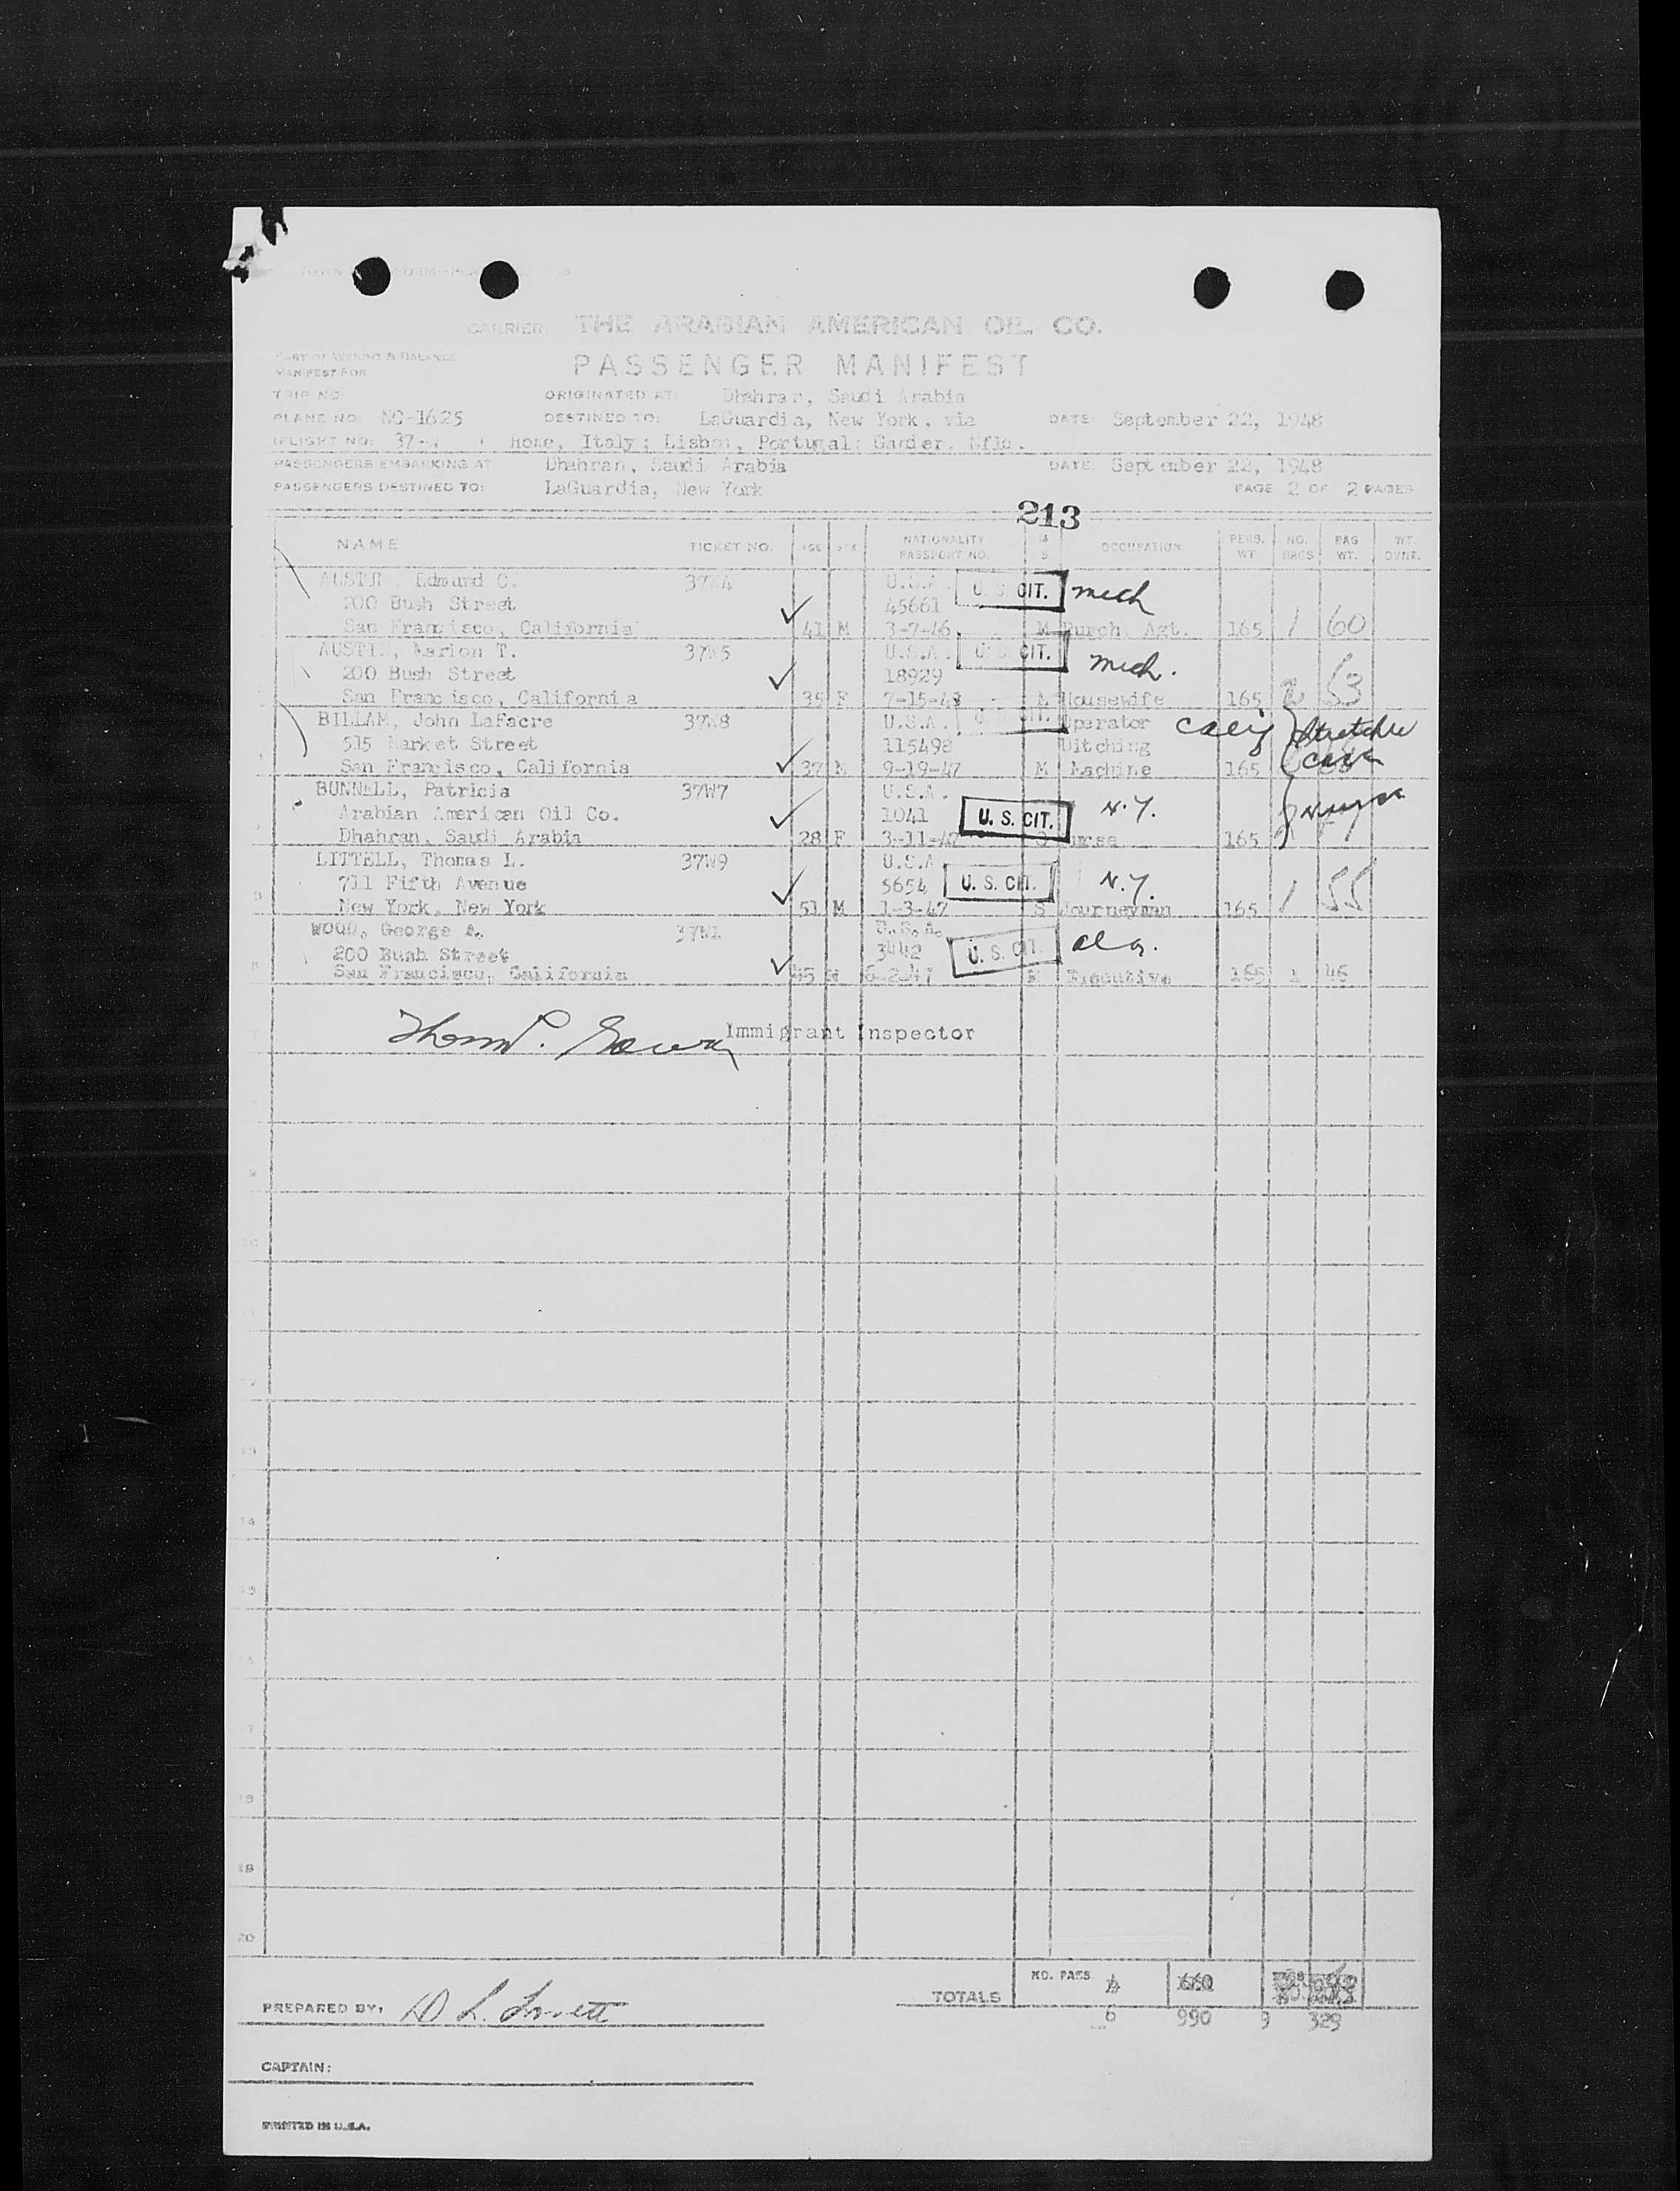 CARRIER: THE ARABIAN AMERICAN OIL CO.
PART OF WEIGHT & BALANCE
MANIFEST FOR
PASSENGER MANIFEST
TRIP NO: ORIGINATED AT: Dhahran, Saudi Arabia
PLANE NO: NC-1625 DESTINED TO: LaGuardia, New York, via DATE: September 22, 1948
FLIGHT NO: 37- Rome, Italy; Lisbon, Portugal; Gander, Nfld.
PASSENGERS EMBARKING AT Dhahran, Saudi Arabia DATE: September 22, 1948
PASSENGERS DESTINED TO: LaGuardia, New York PAGE 2 OF 2 PAGES
213
NAME TICKET NO. AGE SEX NATIONALITY PASSPORT NO. M S OCCUPATION PERS. WT NO. BAGS BAG WT. WT. OVNT.
AUSTIN, Edmund C. 37W4 U.S.A. U. S. CIT. Mich
200 Bush Street 45661
San Francisco, California 41 M 3-7-46 M Purch. Agt. 165 1 60
AUSTIN, Marion T. 37W5 U.S.A. U. S. CIT. Mich.
200 Bush Street 18929
San Francisco, California 35 F 7-15-48 M Housewife 165 2 63
BILLAM, John LaFacre 37W8 U.S.A. U. S. CIT. Operator Calif Stretcher
515 Market Street 115498 Ditching case
San Francisco, California 37 M 9-19-47 M Machine 165
BUNNELL, Patricia 37W7 U.S.A. Nurse
Arabian American Oil Co. 1041 U. S. CIT. N.Y.
Dhahran, Saudi Arabia 28 F 3-11-47 Nurse 165
LITTELL, Thomas L. 37W9 U.S.A
711 Fifth Avenue 5654 U. S. CIT. N.Y.
New York, New York 51 M 1-3-47 S Journeyman 165 1 55
WOOD, George A. 37W1 U.S.A.
200 Bush Street 3442 U. S. CIT.
San Francisco, California 55 M 6-2-47 M Executive 165 1 46
Immigrant Inspector
14
18
19
20
NO. PASS.
TOTALS 660
6 990 9 329
PREPARED BY: D L.
CAPTAIN:
PRINTED IN U.S.A.